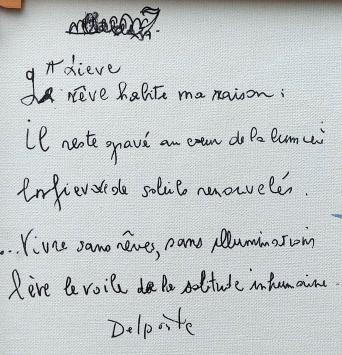 A Lieve
Le rêve habite ma raison :
il reste gravé au cœur de la
de soleils renouvelés.
... Vivre sans rêves, sans illumination
lère le voile de la solitude inhumaine.
Delporte